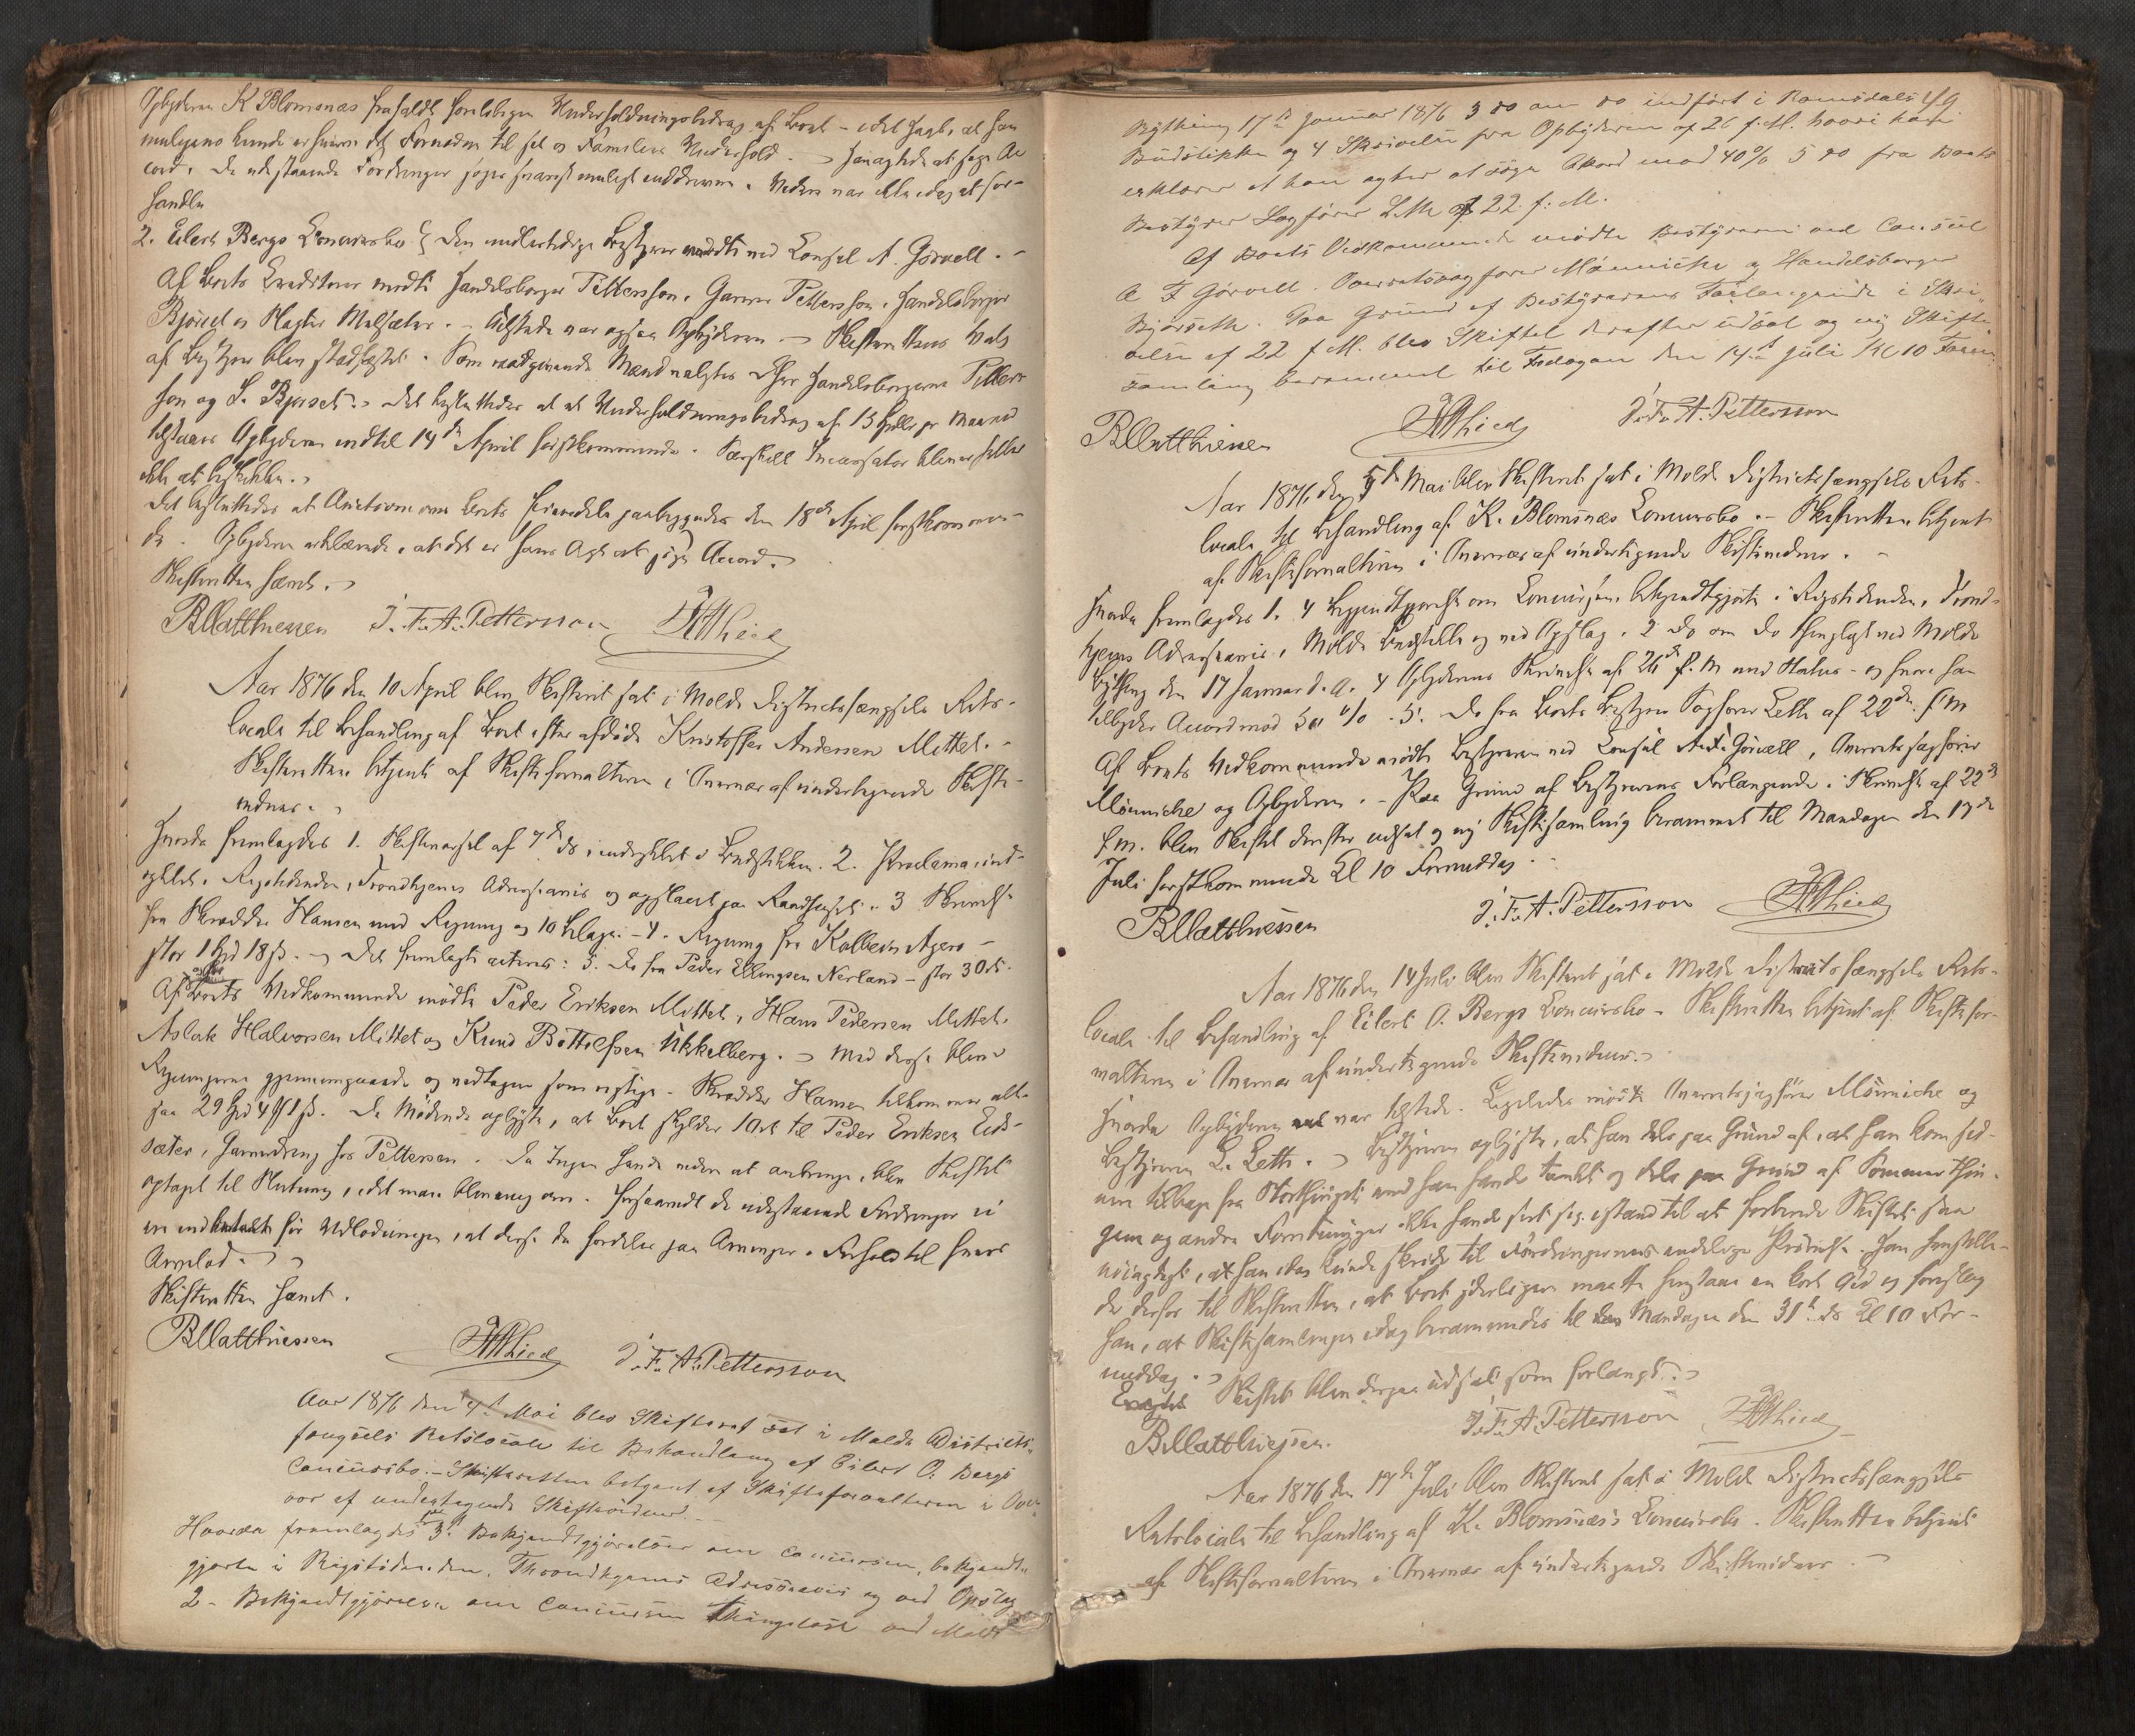 Opbyderen K Blomsnæs frafaldt foreløbigen Underholdningsbidrag af Boet - idet  at han
muligens kunde erhverve det Fornødne til sit og Families Underhold. - Han agtede at søge Ac
cord. De udestaaende Fordringer søges snarest muligt inddrevne. Videre var ikke idag at for-
handle
2. Eilert Bergs Concursbo. Den midlertidige Bestyrer mødte ved Consul A. Gørvell. -
Af Boets Creditorer mødte Handelsborger Pettersson, Garver Pettersson, Handelsborger
Bjørset og Slagter Malsæter. - Tilstede var ogsaa Opbyderen - Skifterettens Valg
af Bestyrer blev stadfæstet. Som raadgivende Mænd valgtes  Handelsborgerne Petters
son og L. Bjørset. - Det besluttedes at et Underholdningsbidrag af 15 Spdlr pr Maaned
tilstaaes Opbyderen indtil 14de April førstkommende. Særskilt Incassator bliver heller
ikke at beskikke. -
Det besluttedes at Auctionen over Boets Eiendele paabegyndes den 18de April førstkommen-
de. Opbyderen erklærede, at det er hans Agt at søge Accord. -
Skifteretten hævet. -
B Matthiessen J. F. A. Pettersson
Aar 1876 den 10 April blev Skifteret sat i Molde Districtsfængsels Rets-
locale til Behandling af Boet efter afdøde Kristoffer Andersen Mittet. -
Skifteretten betjent af Skifteforvalteren i Overvær af undertegnede Skifte-
vidner. -
Hvorda fremlagdes 1. Skiftevarsel af 7de ds indrykket i Budstikken. 2. Proclama ind-
rykket i Rigstidenden, Trondhjems Adresseavis og opslaaet paa Raadhuset. 3 Skrivelse
fra Skrædder Hansen med Regning og 10 Bilage. - 4. Regning fra Kolbein Agerø -
stor 1 Spd 18 ß. - Det fremlagte acteres: 5. Do fra Peder Ellingsen Nerland - stor 30 ß.
Af Boets Vedkommende mødte Peder Eriksen Mittet, Hans Pedersen Mittet,
Aslak Halvorsen Mittet og Knud Bottolfsen Ukkelberg. - Med disse blev
Regningerne gjennemgaaede og vedtagne som rigtige. Skrædder Hansen tilkommer alt-
saa 29 Spd 4 ℔ 1 ß. De Mødende oplyste, at Boet skylder 10 ort til Peder Eriksen Eids-
sæter, Gaardreng hos Pettersen. Da Ingen havde videre at anbringe, blev Skiftet
optaget til Slutning, idet man blev enig om. Forsaavidt de udestaaende Fordringer ei
ere indbetalte før Udlodningen, at disse da fordeles paa Arvinger i Forhold til hvers
Arvelod. -
Skifteretten hævet.
B Matthiessen J. F. A. Pettersson
Aar 1876 den 4de Mai blev Skifteret sat i Molde Districts-
fængsels Retslocale til Behandling af Eilert O. Bergs
Concursbo. - Skifteretten betjent af Skifteforvalteren i Over
vær af undertegnede Skiftevidner. -
Hvorda fremlagdes 3 Bekjendtgjørelser om Concursen, bekjendt-
gjorte i Rigstidenden, Throndhjems Adresseavis og ved Opslag
2 - Bekjendtgjørelse om Concursen thinglæst ved Molde
Bything 17de Januar 1876 3 do om do indført i Romsdals
Budstikke og 4 Skrivelse fra Opbyderen af 26 f. M. hvori han
erklærer at han agter at søge Akord mod 40% 5 do fra Boets
Bestyrer Sagfører Leth af 22 f. M.
Af Boets Vedkommende mødte Bestyreren ved Consul
A F Gørvell. Overretssagfører Mönniche og Handelsborger
Bjørseth. Paa Grund af Bestyrerens Forlangende i Skri-
velse af 22 f. M. blev Skiftet derefter udsat og ny Skifte
samling berammet til Fredagen den 14de Juli Kl 10 Form.
B Matthiessen J. F. A. Pettersson
Aar 1876 den 5te Mai blev Skifteret sat i Molde Districtsfængsels Rets-
locale til Behandling af K. Blomsnæs Concursbo. - Skifteretten betjent
af Skifteforvalteren i Overvær af undertegnede Skiftevidner. -
Hvorda fremlagdes 1. 4 Bekjendtgjørelser om Concursen, bekjendtgjorte i Rigstidenden, Trond-
hjems Adresseavis, Molde Budstikke og ved Opslag. 2 Do om Do thinglyst ved Molde
Bything den 17 Januar d. A. 4 Opbyderens Skrivelse af 26de f. M med Status - og hvori han
tilbyder Accord mod 50 %. 5. Do fra Boets Bestyrer Sagfører Leth af 22de f M
Af Boets Vedkommende mødte Bestyreren ved Consul A. F. Görvell, Overretssagfører
Mönniche og Opbyderen. - Paa Grund af Bestyrerens Forlangende i Skrivelse af 22de
f m. blev Skiftet derefter udsat og ny Skiftesamling berammet til Mandagen den 17de
Juli førstkommende Kl 10 Formiddag. -
B Matthiessen J. F. A. Pettersson
Aar 1876 den 14 Juli blev Skifteret sat i Molde Districtsfængsels Rets-
locale til Behandling af Eilert O. Bergs Concursbo. - Skifteretten betjent af Skiftefor-
valteren i Overvær af undertegnede Skiftevidner. -
Hvorda Opbyderen var tilstede. Ligeledes mødte Overretssagfører Mönniche og
Bestyreren L. Leth. - Bestyreren oplyste, at han dels paa Grund af, at han kom sed-
nere tilbage fra Storthinget end han havde tænkt og dels paa Grund af Sommerthin-
gene og andre Forretninger ikke havde seet sig istand til at forberede Skiftet saa
nøiagtigt, at han idag kunde skride til Fordringernes endelige Prøvelse. Han henstille-
de derfor til Skifteretten, at Boet yderligere maatte henstaae en kort Tid og foreslog
han, at Skiftesamlingen idag berammedes til Mandagen den 31te ds Kl 10 For-
middag. -
Skiftet blev derpaa udsat som forlangt. -
B Matthiessen. J. F. A. Pettersson
Aar 1876 den 17de Juli blev Skifteret sat i Molde Districtsfængsels
Retslocale til Behandling af K. Blomsnæs's Concursbo. Skifteretten betjent
af Skifteforvalteren i Overvær af undertegnede Skiftevidner. -